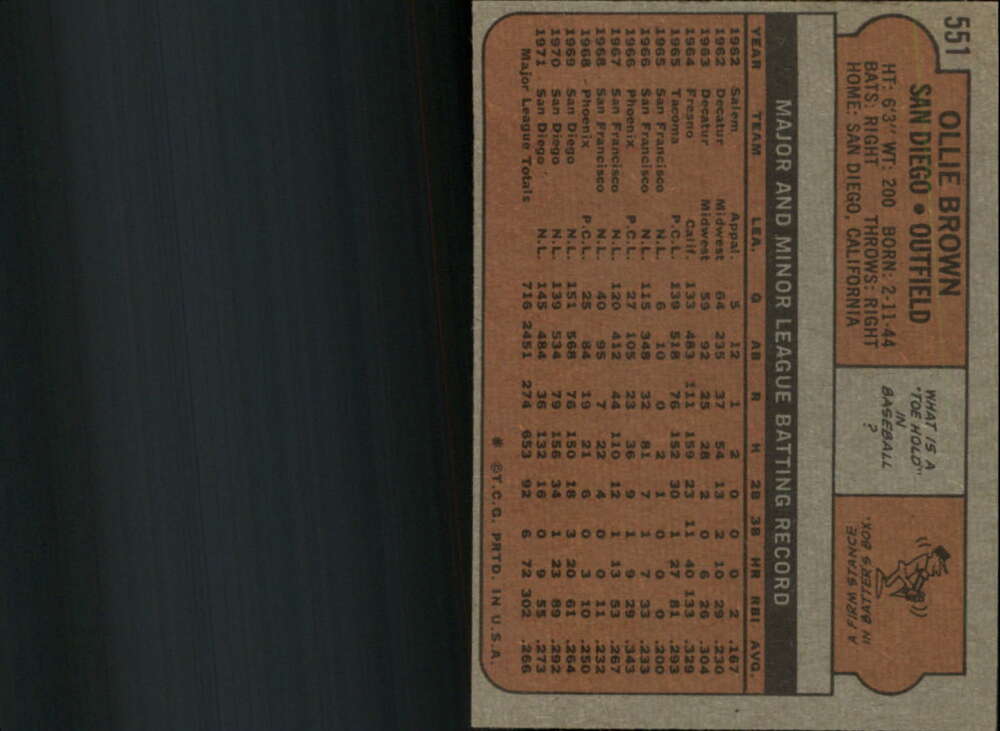 551
OLLIE BROWN
SAN DIEGO • OUTFIELD
HT: 6'3" WT: 200 BORN: 2-11-44
BATS: RIGHT THROWS: RIGHT
HOME: SAN DIEGO, CALIFORNIA
WHAT IS A
"TOE HOLD"
IN
BASEBALL
?
A FIRM STANCE
IN BATTER'S BOX.
MAJOR AND MINOR LEAGUE BATTING RECORD
YEAR TEAM LEA. G AB R H 2B 3B HR RBI AVG.
1962 Salem Appal. 5 12 1 2 0 0 0 2 .167
1962 Decatur Midwest 64 235 37 54 13 2 10 29 .230
1963 Decatur Midwest 59 92 25 28 2 0 6 26 .304
1964 Fresno Calif. 133 483 111 159 23 11 40 133 .329
1965 Tacoma P.C.L. 139 518 76 152 30 1 27 81 .293
1965 San Francisco N.L. 6 10 0 2 1 0 0 0 .200
1966 San Francisco N.L. 115 348 32 81 7 1 7 33 .233
1966 Phoenix P.C.L. 27 105 23 36 9 1 9 29 .343
1967 San Francisco N.L. 120 412 44 110 12 1 13 53 .267
1968 San Francisco N.L. 40 95 7 22 4 0 0 11 .232
1968 Phoenix P.C.L. 25 84 19 21 6 0 3 10 .250
1969 San Diego N.L. 151 568 76 150 18 3 20 61 .264
1970 San Diego N.L. 139 534 79 156 34 1 23 89 .292
1971 San Diego N.L. 145 484 36 132 16 0 9 55 .273
Major League Totals 716 2451 274 653 92 6 72 302 .266
* ©T.C.G. PRTD. IN U.S.A.